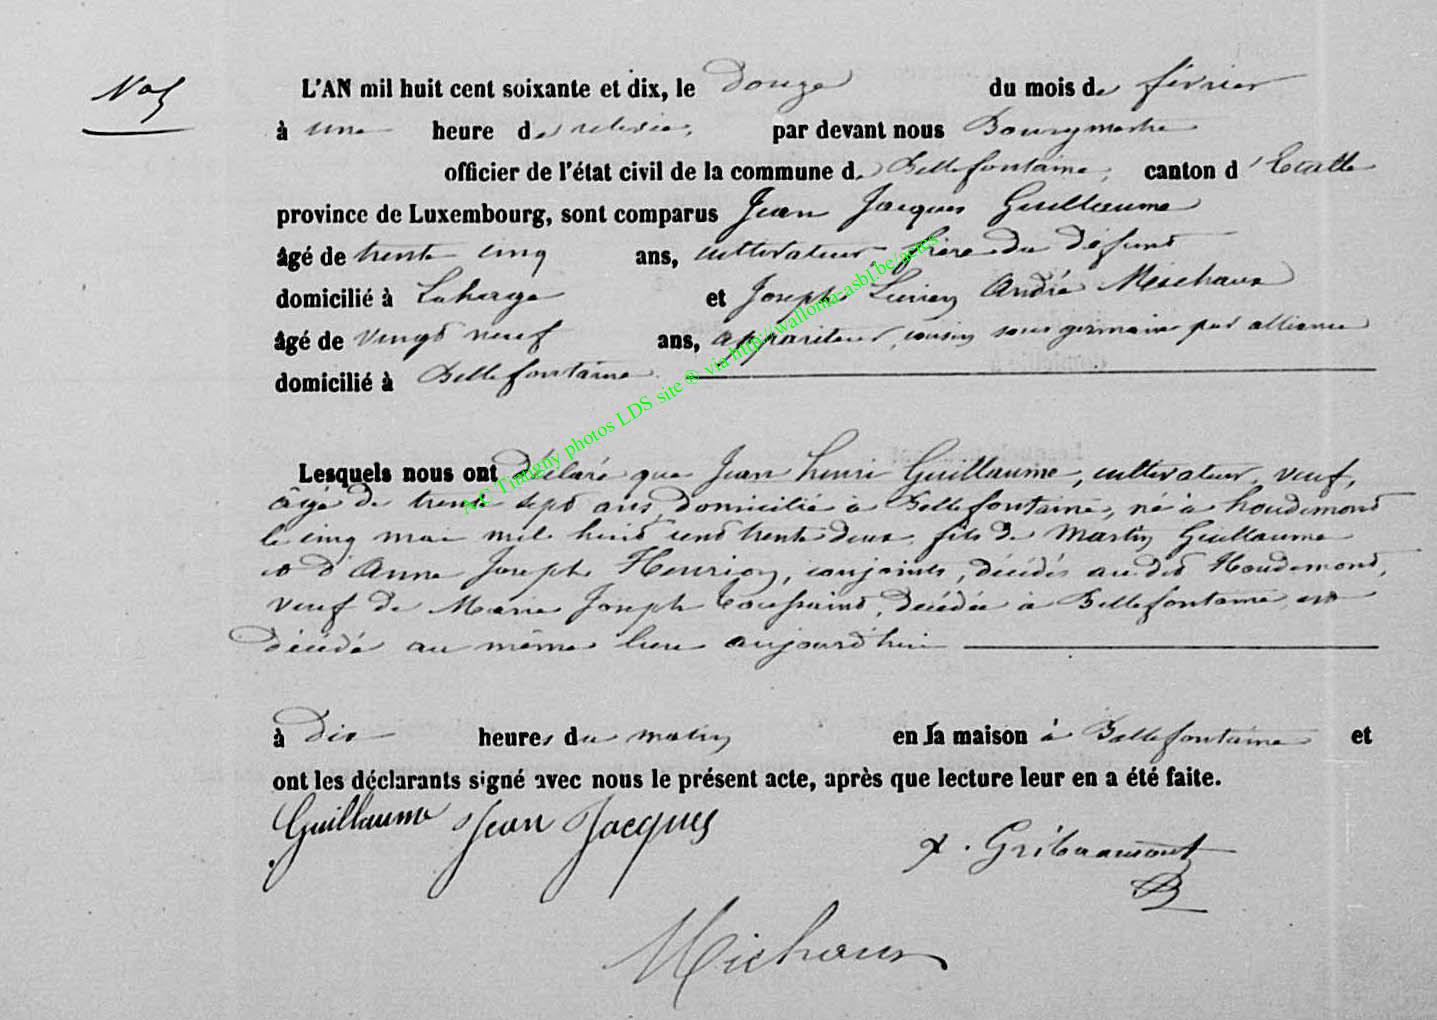 N° 5
L'AN mil huit cent soixante et dix, le douze du mois de février
à une heure de relevée, par devant nous Bourgmestre
officier de l'état civil de la commune de Bellefontaine, canton d'Etalle
province de Luxembourg, sont comparus Jean Jacques Guillaume
âgé de trente cinq ans, cultivateur, frère du défunt
domicilié à Lahage et Joseph Lucien André Michaux
âgé de vingt neuf ans, appariteur, cousin sous germain par alliance
domicilié à Bellefontaine.
Lesquels nous ont déclaré que Jean henri Guillaume, cultivateur, veuf,
âgé de trente sept ans, domicilié à Bellefontaine, né à houdemont
le cinq mai mil huit cent trente deux, fils de Martin Guillaume
et d'Anne Joseph Henrion, conjoints, décédés au dit Houdemont,
veuf de Marie Joseph Toussaint, décédée à Bellefontaine, est
décédé au même lieu aujourd'hui
à dix heures du matin en sa maison à Bellefontaine et
ont les déclarants signé avec nous le présent acte, après que lecture leur en a été faite.
Guillaume Jean Jacques
x. Gribaumont
Michaux
A.C Tintigny photos LDS site ® via http://wallonia-asbl.be/actes